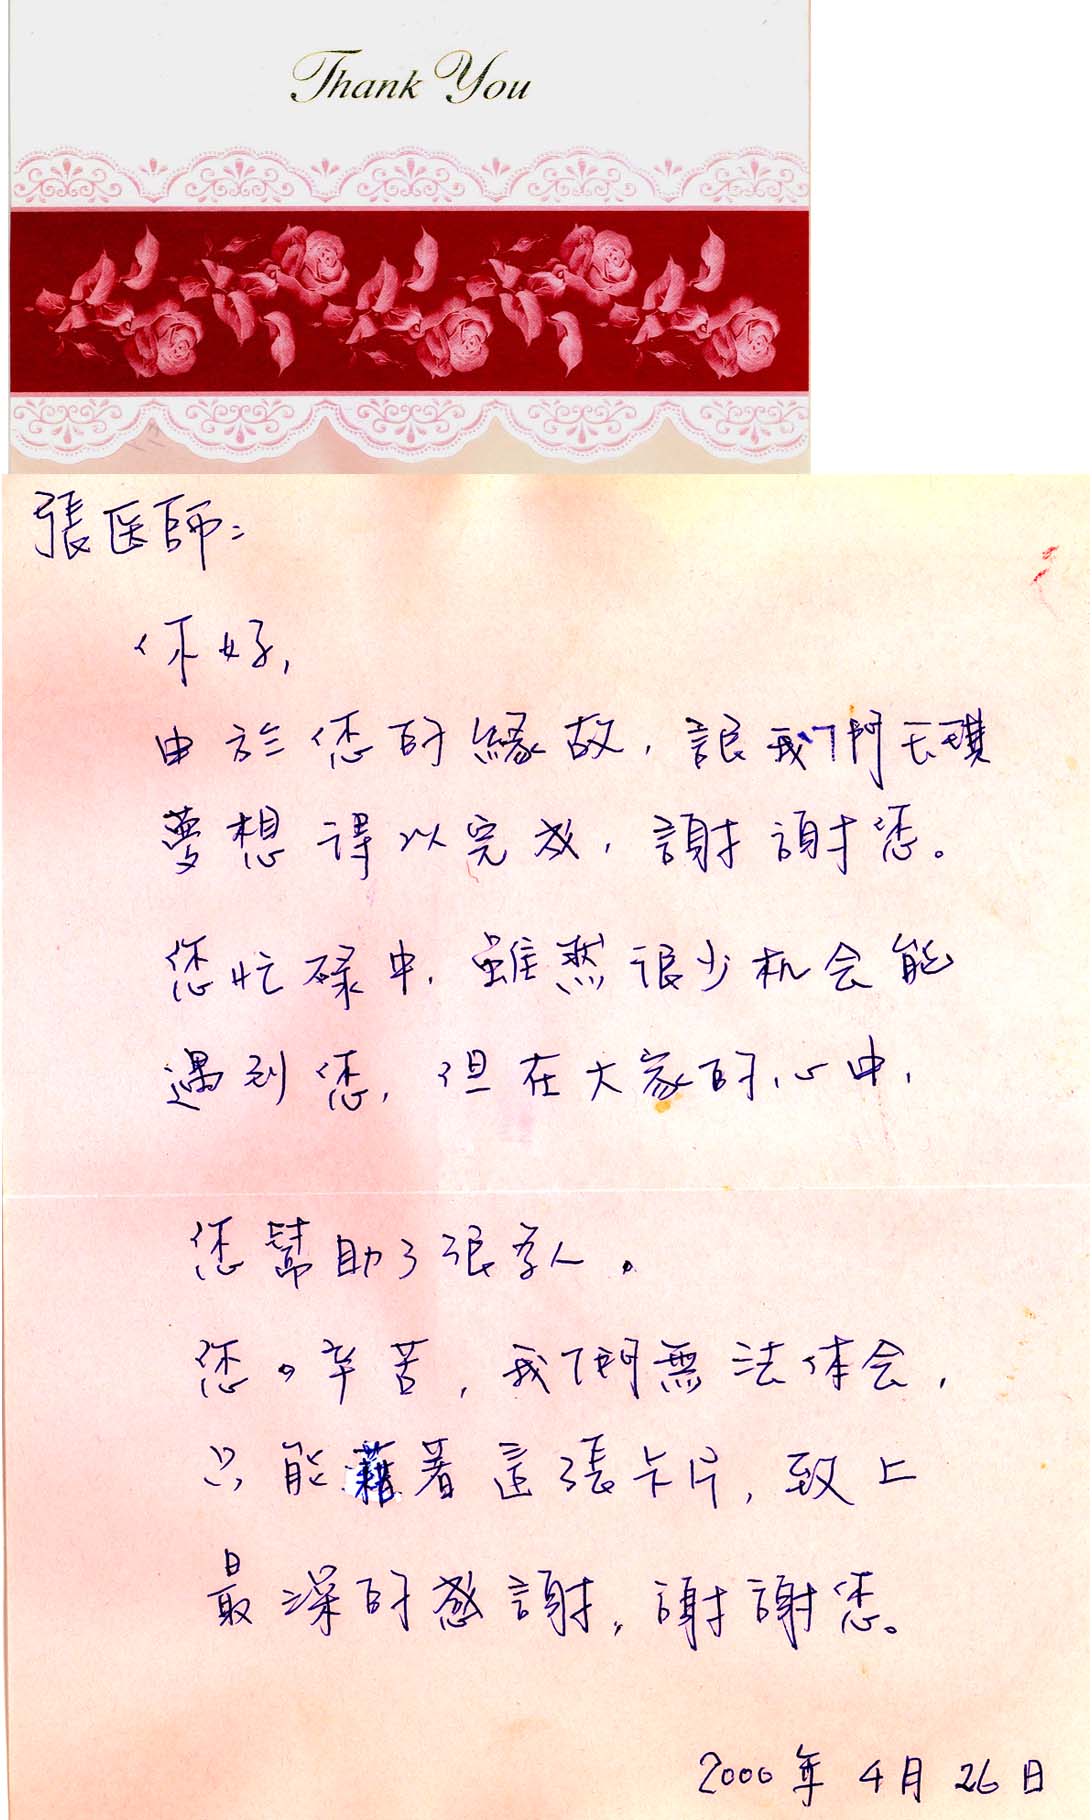 Thank You
張医師:
你好,
由於您的緣故,讓我們天璣
夢想得以完成,謝謝您。
您忙碌中,雖然很少机会能
遇到您,但在大家的心中,
您幫助了很多人。
您の辛苦,我們無法体会,
只能藉著這張卡片,致上
最深的感謝,謝謝您。
2000年4月26日